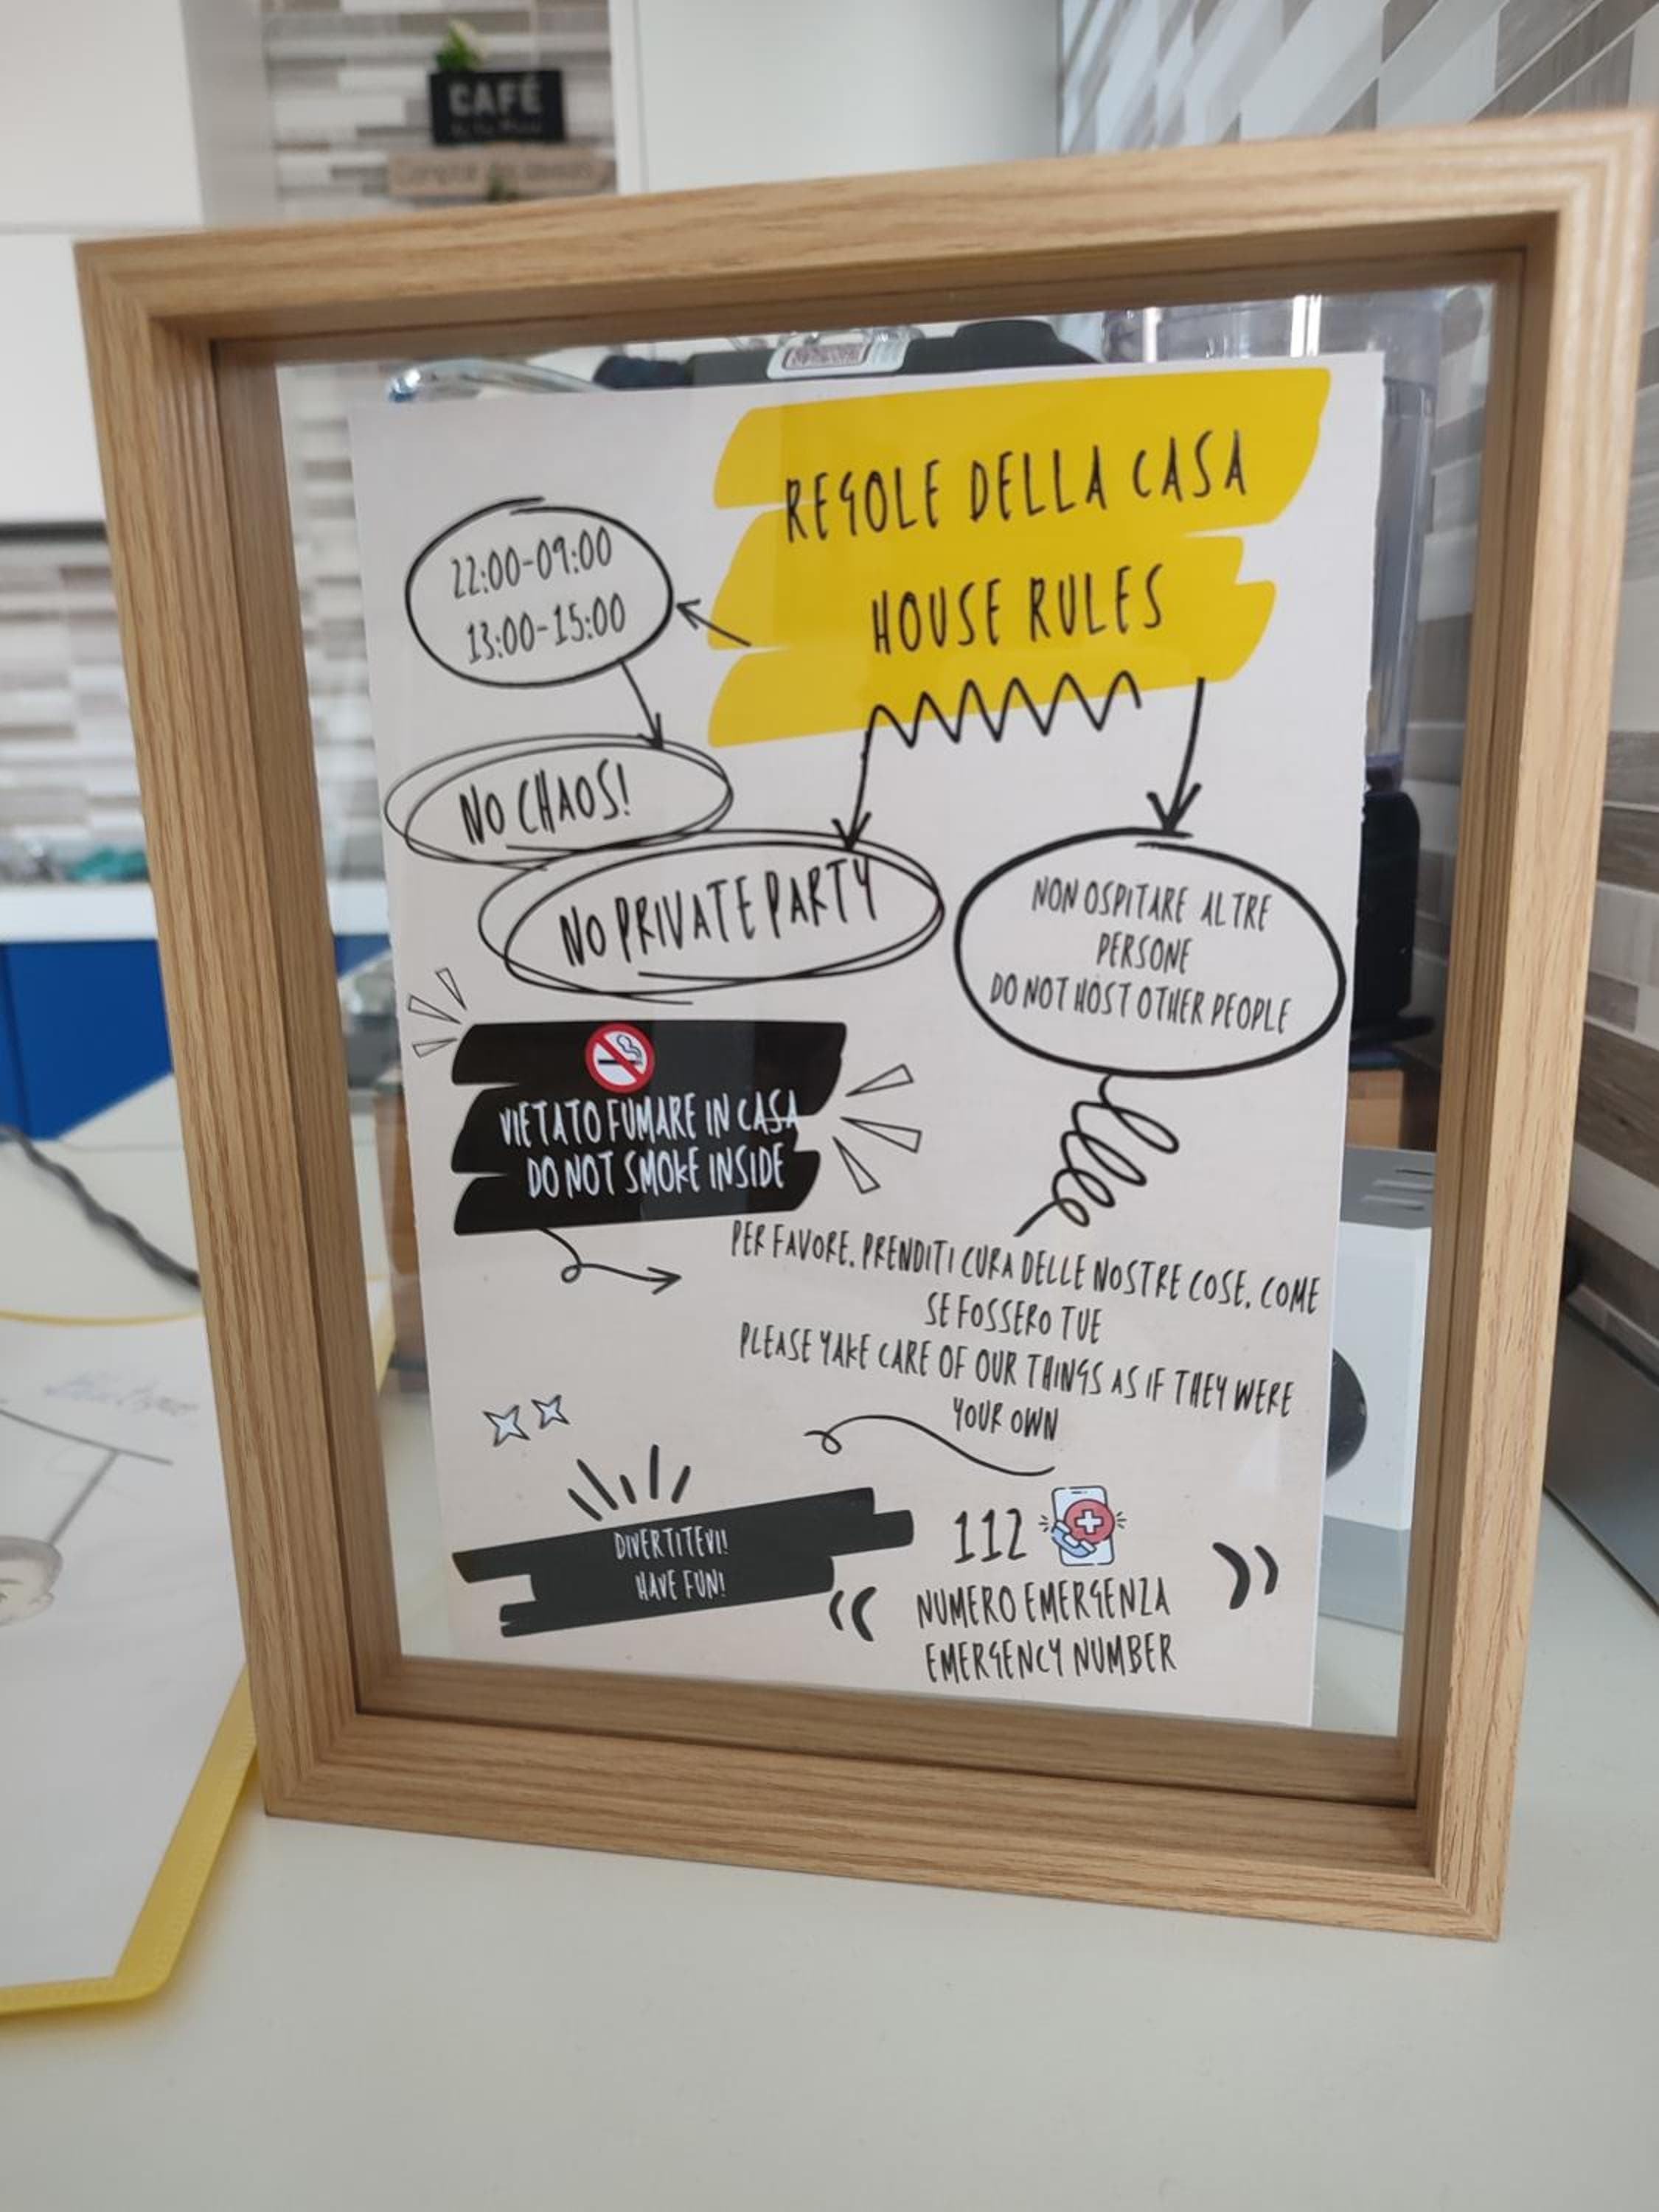 CAFÉ
REGOLE DELLA CASA
HOUSE RULES
22:00-09:00
13:00-15:00
NO CHAOS!
NO PRIVATE PARTY
NON OSPITARE ALTRE
PERSONE
DO NOT HOST OTHER PEOPLE
VIETATO FUMARE IN CASA
DO NOT SMOKE INSIDE
PER FAVORE, PRENDITI CURA DELLE NOSTRE COSE, COME
SE FOSSERO TUE
PLEASE YAKE CARE OF OUR THINGS AS IF THEY WERE
YOUR OWN
DIVERTITEVI!
HAVE FUN!
112
NUMERO EMERGENZA
EMERGENCY NUMBER